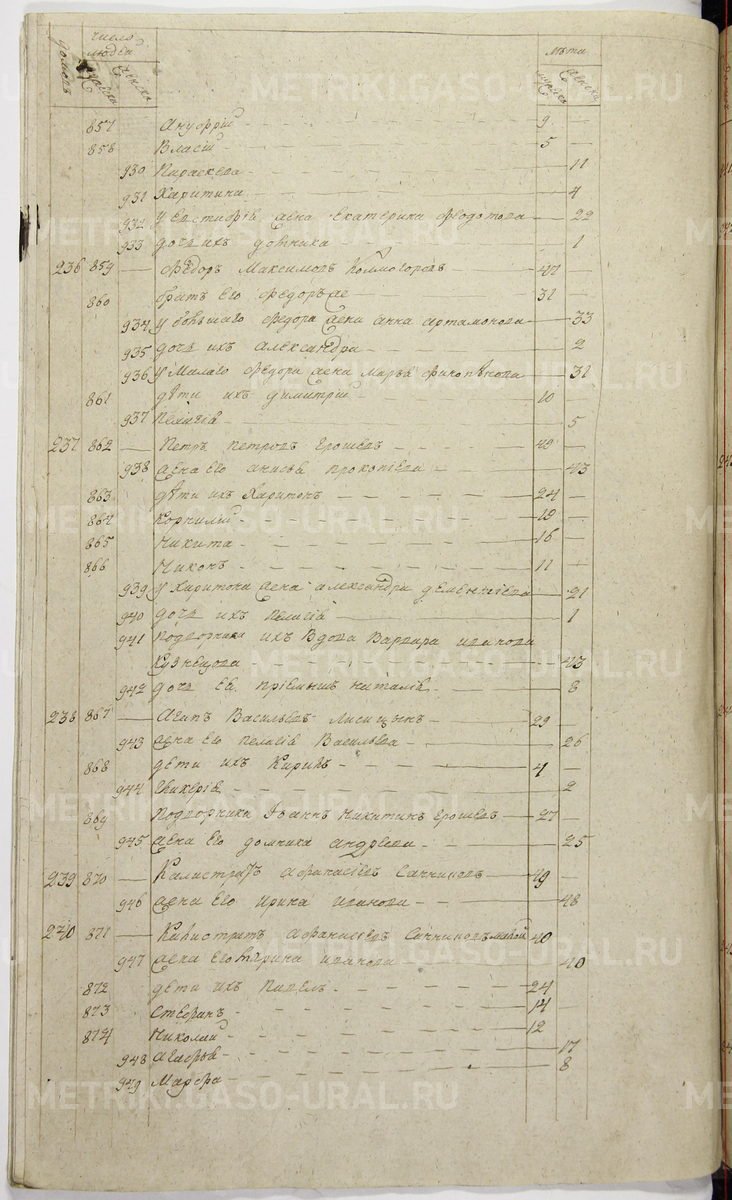 домовъ число людей мужеска женска лѣта мужеска женска
857 Ануфрій 9
858 Власій 5
930 Параскева 11
931 Харитина 4
932 У жена Екатерина Федотова 22
933 дочь ихъ Домника 1
236 859 Федоръ Максимовъ Колмогоровъ 47
860 братъ его Федоръ же 31
934 У большаго Федора жена Анна Артамонова 33
935 дочь ихъ Александра 2
936 У малаго Федора жена Марѳа 31
861 дѣти ихъ Димитрій 10
937 Пелагія 5
237 862 Петръ Петровъ Ерошевъ 49
938 жена его Анисья Прокопіева 43
863 дѣти ихъ Харитонъ 24
864 Корнилій 19
865 Никита 16
866 Никонъ 11
939 У Харитона жена Александра Дементіева 21
940 дочь ихъ Пелагія 1
941 Подворники ихъ вдова Варвара Иванова
Кузнецова 43
942 дочь ея пріемышъ Наталія 8
238 867 Агапъ Васильевъ Лисицынъ 29
943 жена его Пелагія Васильева 26
868 дети ихъ Кирикъ 4
944 Гликерія 2
869 Подворники Іоаннъ Никитинъ Ерошевъ 27
945 жена его Домника Андреева 25
239 870 Калистратъ Афанасіевъ Санниковъ 49
946 жена его Ирина Иванова 48
240 871 Калистратъ Афанасіевъ Санниковъ малой 40
947 жена его Ирина Иванова 40
872 дети ихъ Павелъ 24
873 Стефанъ 14
874 Николай 12
948 Агафья 17
949 Марфа 8
METRIKI.GASO-URAL.RU